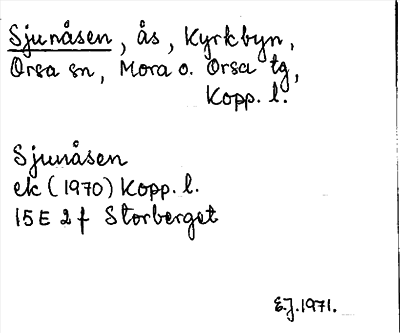 Sjunåsen, ås, Kyrkbyn,
Orsa sn, Mora o. Orsa tg,
Kopp. l.
Sjunåsen
ek (1970) Kopp. l.
15E 2f Storberget
E.J. 1971.